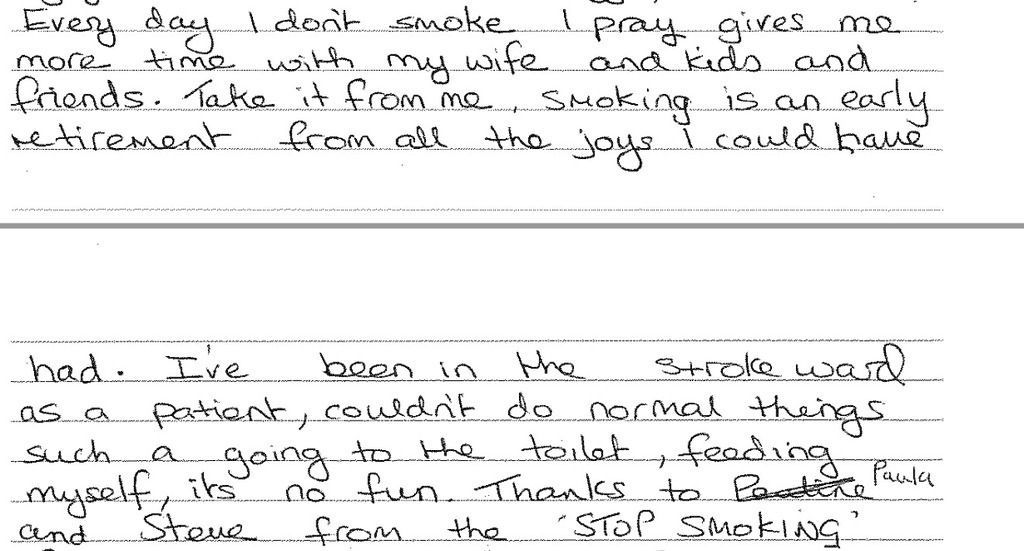 Every day I don't smoke I pray gives me
more time with my wife and kids and
friends. Take it from me, smoking is an early
retirement from all the joys I could have
had. I've been in the stroke ward
as a patient, couldn't do normal things
such a going to the toilet, feeding
myself, its no fun. Thanks to Pauline Paula
and Steve from the 'STOP SMOKING'